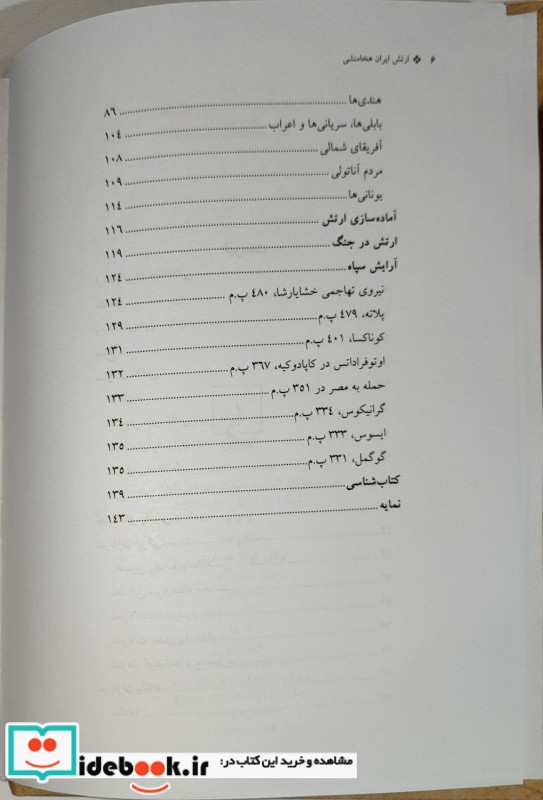 ۶ ❖ ارتش ایران هخامنشی
هندی‌ها ........ ۸۶
بابلی‌ها، سریانی‌ها و اعراب ........ ۱۰۴
آفریقای شمالی ........ ۱۰۸
مردم آناتولی ........ ۱۰۹
یونانی‌ها ........ ۱۱۴
آماده‌سازی ارتش ........ ۱۱۶
ارتش در جنگ ........ ۱۱۹
آرایش سپاه ........ ۱۲۴
نیروی تهاجمی خشایارشا، ۴۸۰ پ.م ........ ۱۲۴
پلاته، ۴۷۹ پ.م ........ ۱۲۹
کوناکسا، ۴۰۱ پ.م ........ ۱۳۱
اوتوفراداتس در کاپادوکیه، ۳۶۷ پ.م ........ ۱۳۲
حمله به مصر در ۳۵۱ پ.م ........ ۱۳۳
گرانیکوس، ۳۳۴ پ.م ........ ۱۳۴
ایسوس، ۳۳۳ پ.م ........ ۱۳۵
گوگمل، ۳۳۱ پ.م ........ ۱۳۵
کتاب‌شناسی ........ ۱۳۹
نمایه ........ ۱۴۳
مشاهده و خرید این کتاب در:
idebook.ir